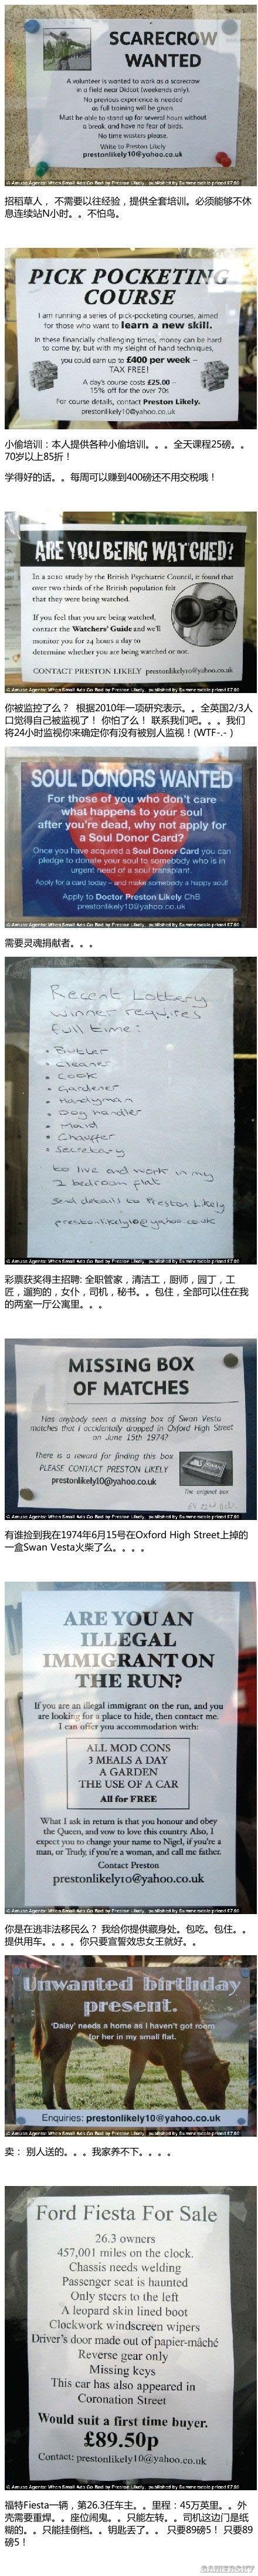 SCARECROW
WANTED
A volunteer is wanted to work as a scarecrow
in a field near Didcot (weekends only).
No previous experience is needed
as full training will be given.
Must be able to stand up for several hours without
a break, and have no fear of birds.
No time wasters please.
Write to Preston Likely
prestonlikely10@yahoo.co.uk
招稻草人，不需要以往经验，提供全套培训。必须能够不休
息连续站N小时。。不怕鸟。
PICK POCKETING
COURSE
I am running a series of pick-pocketing courses, aimed
for those who want to learn a new skill.
In these financially challenging times, money can be hard
to come by, but with my sleight of hand techniques,
you could earn up to £400 per week –
TAX FREE!
A day's course costs £25.00 –
15% off for the over 70s
For course details, contact Preston Likely.
prestonlikely10@yahoo.co.uk
小偷培训：本人提供各种小偷培训。。。全天课程25磅。。
70岁以上85折！
学得好的话。。每周可以赚到400磅还不用交税哦！
ARE YOU BEING WATCHED?
In a 2010 study by the British Psychiatric Council, it found that
over two thirds of the British population felt
that they were being watched.
If you feel that you are being watched,
contact the Watchers' Guide and we'll
monitor you for 24 hours a day to
determine whether you are being watched or not.
CONTACT PRESTON LIKELY prestonlikely10@yahoo.co.uk
你被监控了么？ 根据2010年一项研究表示。。全英国2/3人
口觉得自己被监视了！ 你怕了么！ 联系我们吧。。。我们
将24小时监视你来确定你有没有被别人监视！(WTF-.- )
SOUL DONORS WANTED
For those of you who don't care
what happens to your soul
after you're dead, why not apply for
a Soul Donor Card?
Once you have acquired a Soul Donor Card you can
pledge to donate your soul to somebody who is in
urgent need of a soul transplant.
Apply for a card today – and make somebody a happy soul!
Apply to Doctor Preston Likely ChB
prestonlikely10@yahoo.co.uk
需要灵魂捐献者。。。
Recent Lottery
winner requires
full time:
• Butler
• Cleaner
• Cook
• Gardener
• Handyman
• Dog handler
• Maid
• Chauffer
• Secretary
to live and work in my
2 bedroom flat
Send details to Preston Likely
prestonlikely10@yahoo.co.uk
彩票获奖得主招聘: 全职管家，清洁工，厨师，园丁，工
匠，遛狗的，女仆，司机，秘书。。包住，全部可以住在我
的两室一厅公寓里。。。
MISSING BOX
OF MATCHES
Has anybody seen a missing box of Swan Vesta
matches that I accidentally dropped in Oxford High Street
on June 15th 1974?
There is a reward for finding this box
PLEASE CONTACT PRESTON LIKELY
prestonlikely10@yahoo.co.uk
The original box
有谁捡到我在1974年6月15号在Oxford High Street上掉的
一盒Swan Vesta火柴了么。。。。
ARE YOU AN
ILLEGAL
IMMIGRANT ON
THE RUN?
If you are an illegal immigrant on the run, and you
are looking for a place to hide, then contact me.
I can offer you accommodation with:
ALL MOD CONS
3 MEALS A DAY
A GARDEN
THE USE OF A CAR
All for FREE
What I ask in return is that you honour and obey
the Queen, and vow to love this country. Also, I
expect you to change your name to Nigel, if you're a
man, or Trudy, if you're a woman, and call me father.
Contact Preston
prestonlikely10@yahoo.co.uk
你是在逃非法移民么？ 我给你提供藏身处。包吃。包住。。
提供用车。。。。你只要宣誓效忠女王就好。。
Unwanted birthday
present.
'Daisy' needs a home as I haven't got room
for her in my small flat.
Enquiries: prestonlikely10@yahoo.co.uk
卖： 别人送的。。。我家养不下。。。。
Ford Fiesta For Sale
26.3 owners
457,001 miles on the clock.
Chassis needs welding
Passenger seat is haunted
Only steers to the left
A leopard skin lined boot
Clockwork windscreen wipers
Driver's door made out of papier-mâché
Reverse gear only
Missing keys
This car has also appeared in
Coronation Street
Would suit a first time buyer.
£89.50p
Contact: prestonlikely10@yahoo.co.uk
福特Fiesta一辆，第26.3任车主。。里程：45万英里。。外
壳需要重焊。。座位闹鬼。。只能左转。。司机这边门是纸
糊的。。只能挂倒档。。钥匙丢了。。 只要89磅5！ 只要89
磅5！
GAMERSKY